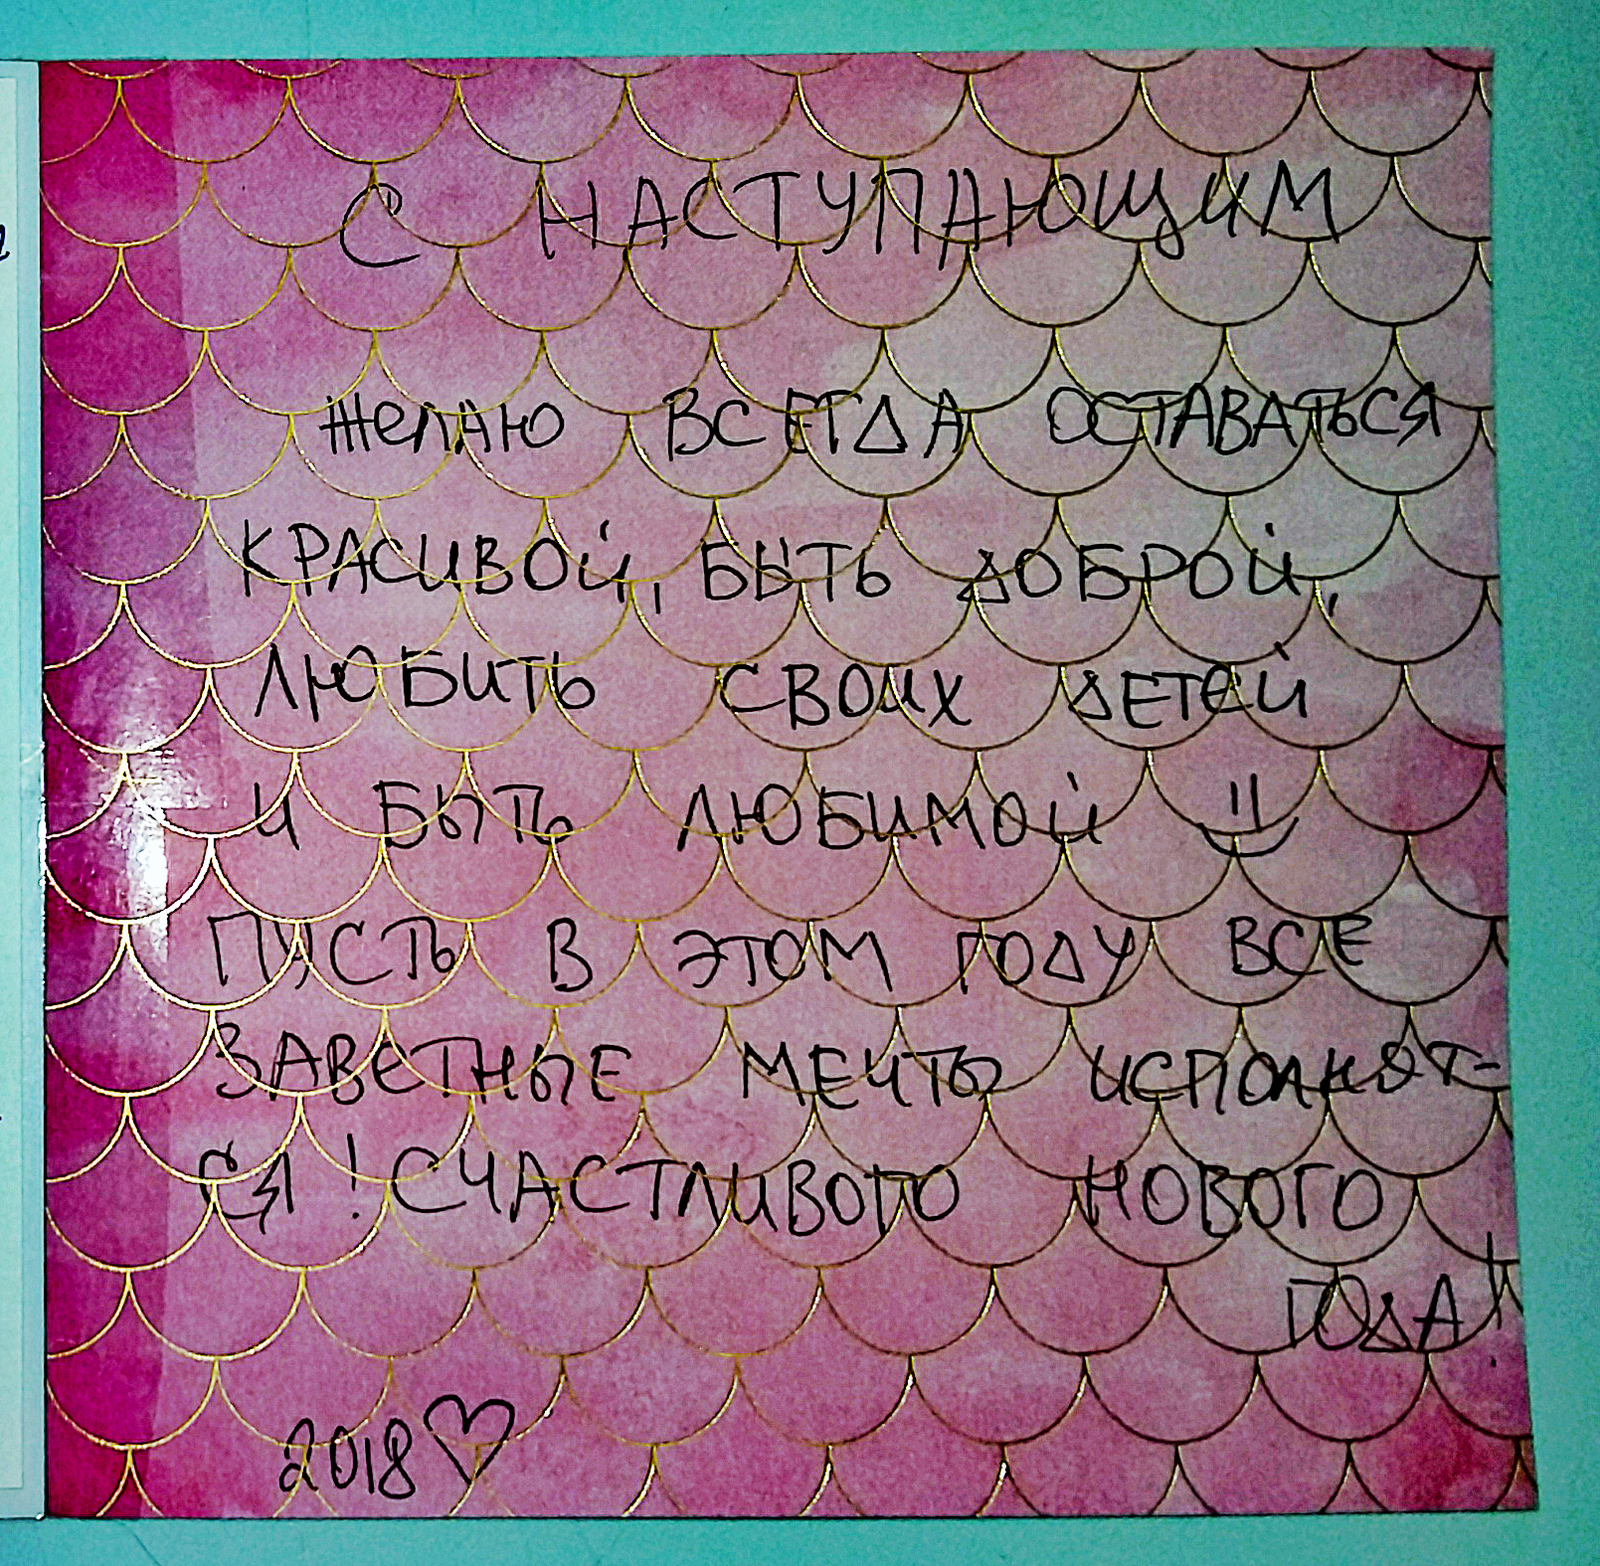 С НАСТУПАЮЩИМ
ЖЕЛАЮ ВСЕГДА ОСТАВАТЬСЯ
КРАСИВОЙ, БЫТЬ ДОБРОЙ,
ЛЮБИТЬ СВОИХ ДЕТЕЙ
И БЫТЬ ЛЮБИМОЙ
ПУСТЬ В ЭТОМ ГОДУ ВСЕ
ЗАВЕТНЫЕ МЕЧТЫ ИСПОЛНЯТ-
СЯ! СЧАСТЛИВОГО НОВОГО
ГОДА!
2018 ♡